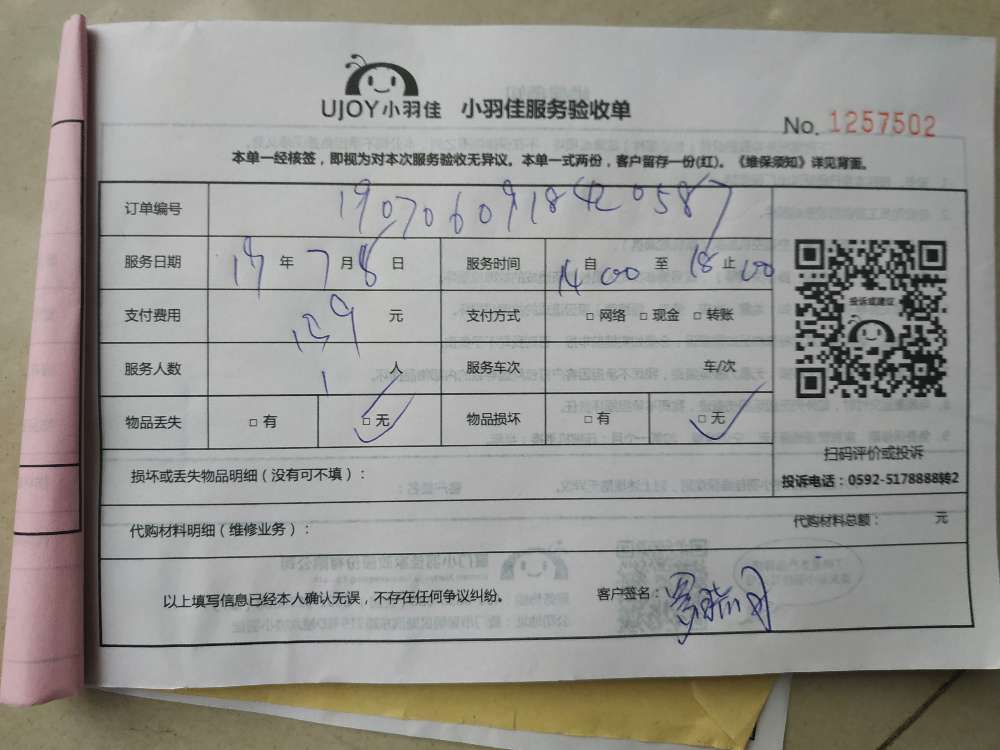 UJOY小羽佳 小羽佳服务验收单
No. 1257502
本单一经核签，即视为对本次服务验收无异议。本单一式两份，客户留存一份(红)。《维保须知》详见背面。
订单编号 190706091842 0587
服务日期 19 年 7 月 8 日 服务时间 自 14 00 至 18 止 00
支付费用 159 元 支付方式 □ 网络 □ 现金 □ 转账
投诉或建议
服务人数 1 人 服务车次 车/次
物品丢失 □ 有 □ 无 物品损坏 □ 有 □ 无
扫码评价或投诉
损坏或丢失物品明细（没有可不填）：
投诉电话：0592-5178888转2
代购材料明细（维修业务）： 代购材料总额： 元
以上填写信息已经本人确认无误，不存在任何争议纠纷。 客户签名：